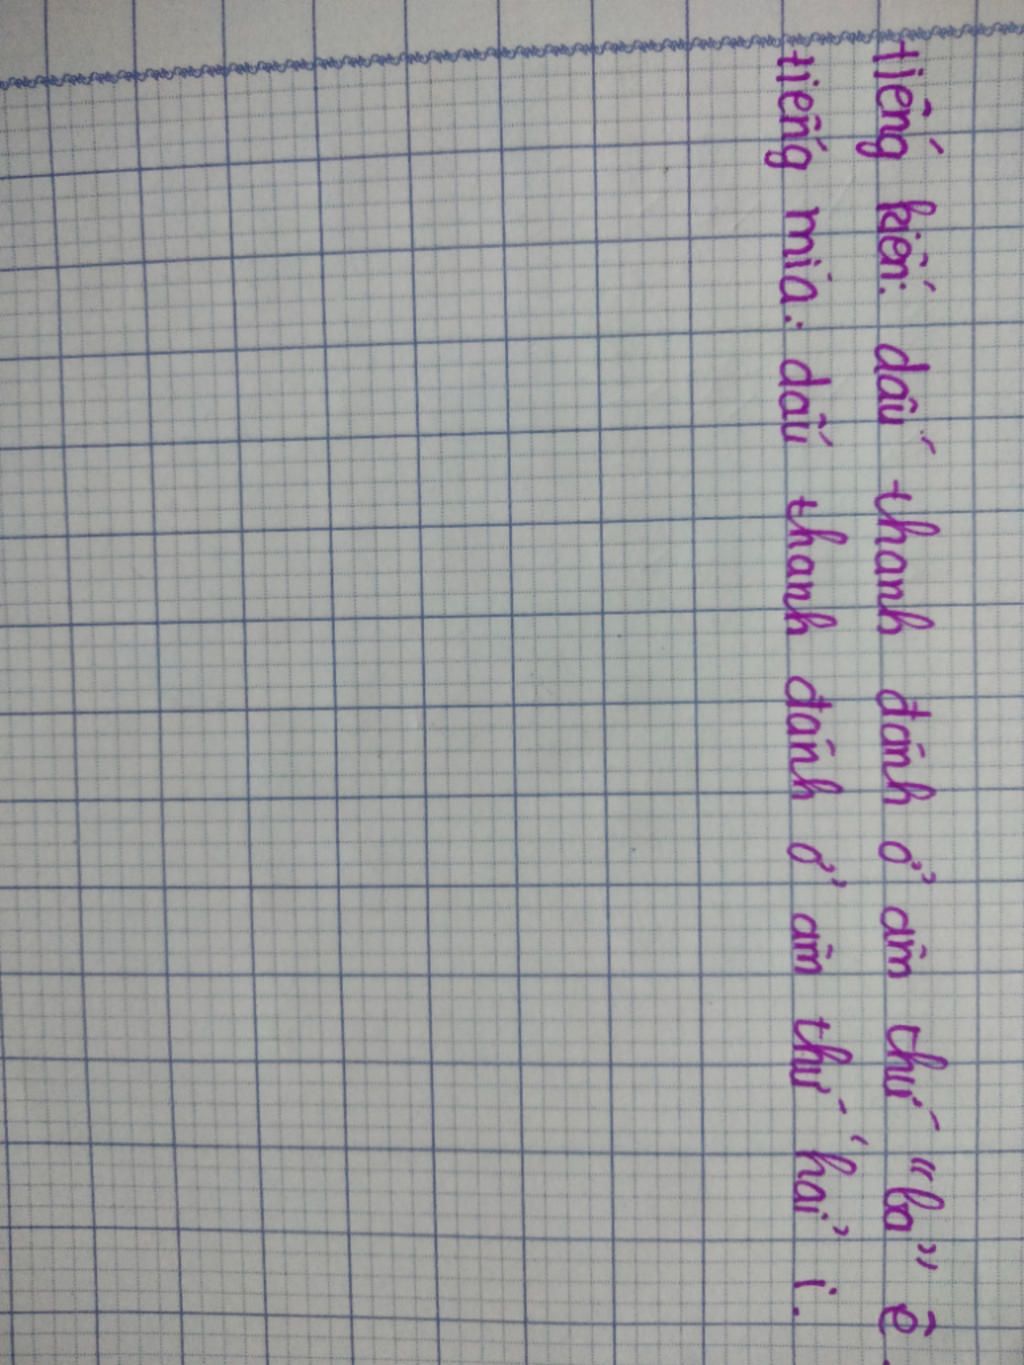 tiếng kiến: dấu thanh đánh ở âm thứ "ba" ê.
tiếng mía: dấu thanh đánh ở âm thứ 'hai' i.